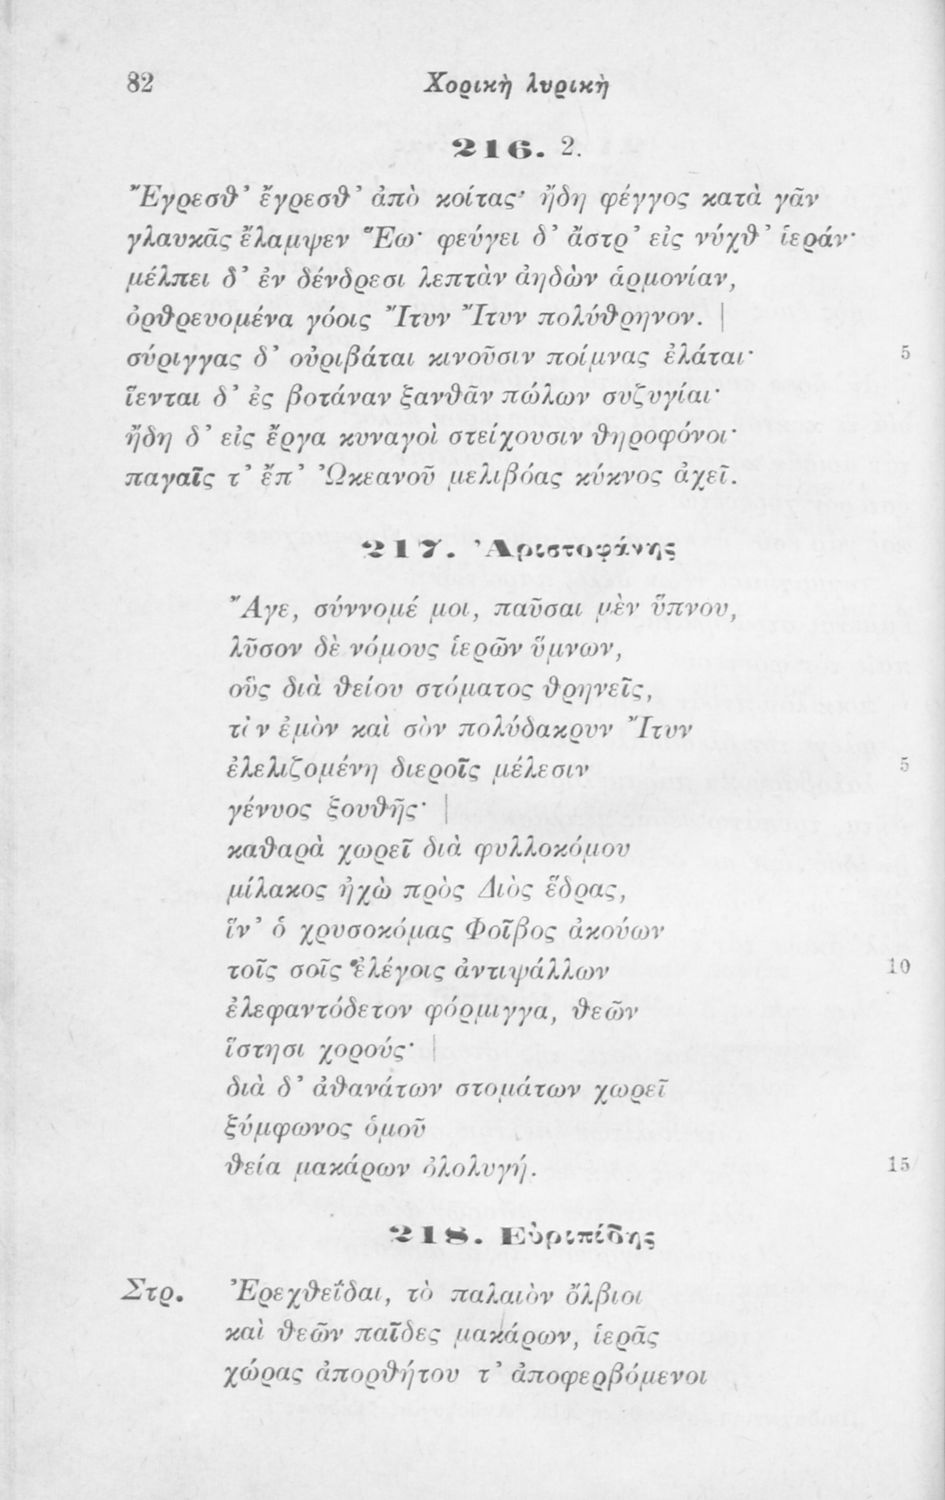 82
Χορικὴ λυρικὴ
216. 2.
Ἔγρεσθ’ ἔγρεσθ’ ἀπὸ κοίτας· ἤδη φέγγος κατὰ γᾶν
γλαυκᾶς ἔλαμψεν Ἕω· φεύγει δ’ ἄστρ’ εἰς νύχθ’ ἱεράν·
μέλπει δ’ ἐν δένδρεσι λεπτὰν ἀηδὼν ἁρμονίαν,
ὀρθρευομένα γόοις Ἴτυν Ἴτυν πολύθρηνον. |
σύριγγας δ’ οὐριβάται κινοῦσιν ποίμνας ἐλάται· 5
ἵενται δ’ ἐς βοτάναν ξανθᾶν πώλων συζυγίαι·
ἤδη δ’ εἰς ἔργα κυναγοὶ στείχουσιν θηροφόνοι·
παγαῖς τ’ ἔπ’ Ὠκεανοῦ μελιβόας κύκνος ἀχεῖ.
217. Ἀριστοφάνης
Ἄγε, σύννομέ μοι, παῦσαι μὲν ὕπνου,
λῦσον δὲ νόμους ἱερῶν ὕμνων,
οὓς διὰ θείου στόματος θρηνεῖς,
τὸν ἐμὸν καὶ σὸν πολύδακρυν Ἴτυν
ἐλελιζομένη διεροῖς μέλεσιν 5
γένυος ξουθῆς· |
καθαρὰ χωρεῖ διὰ φυλλοκόμου
μίλακος ἠχὼ πρὸς Διὸς ἕδρας,
ἵν’ ὁ χρυσοκόμας Φοῖβος ἀκούων
τοῖς σοῖς ἐλέγοις ἀντιψάλλων 10
ἐλεφαντόδετον φόρμιγγα, θεῶν
ἵστησι χορούς· |
διὰ δ’ ἀθανάτων στομάτων χωρεῖ
ξύμφωνος ὁμοῦ
θεία μακάρων ὀλολυγή. 15
218. Εὐριπίδης
Στρ. Ἐρεχθεΐδαι, τὸ παλαιὸν ὄλβιοι
καὶ θεῶν παῖδες μακάρων, ἱερᾶς
χώρας ἀπορθήτου τ’ ἀποφερβόμενοι